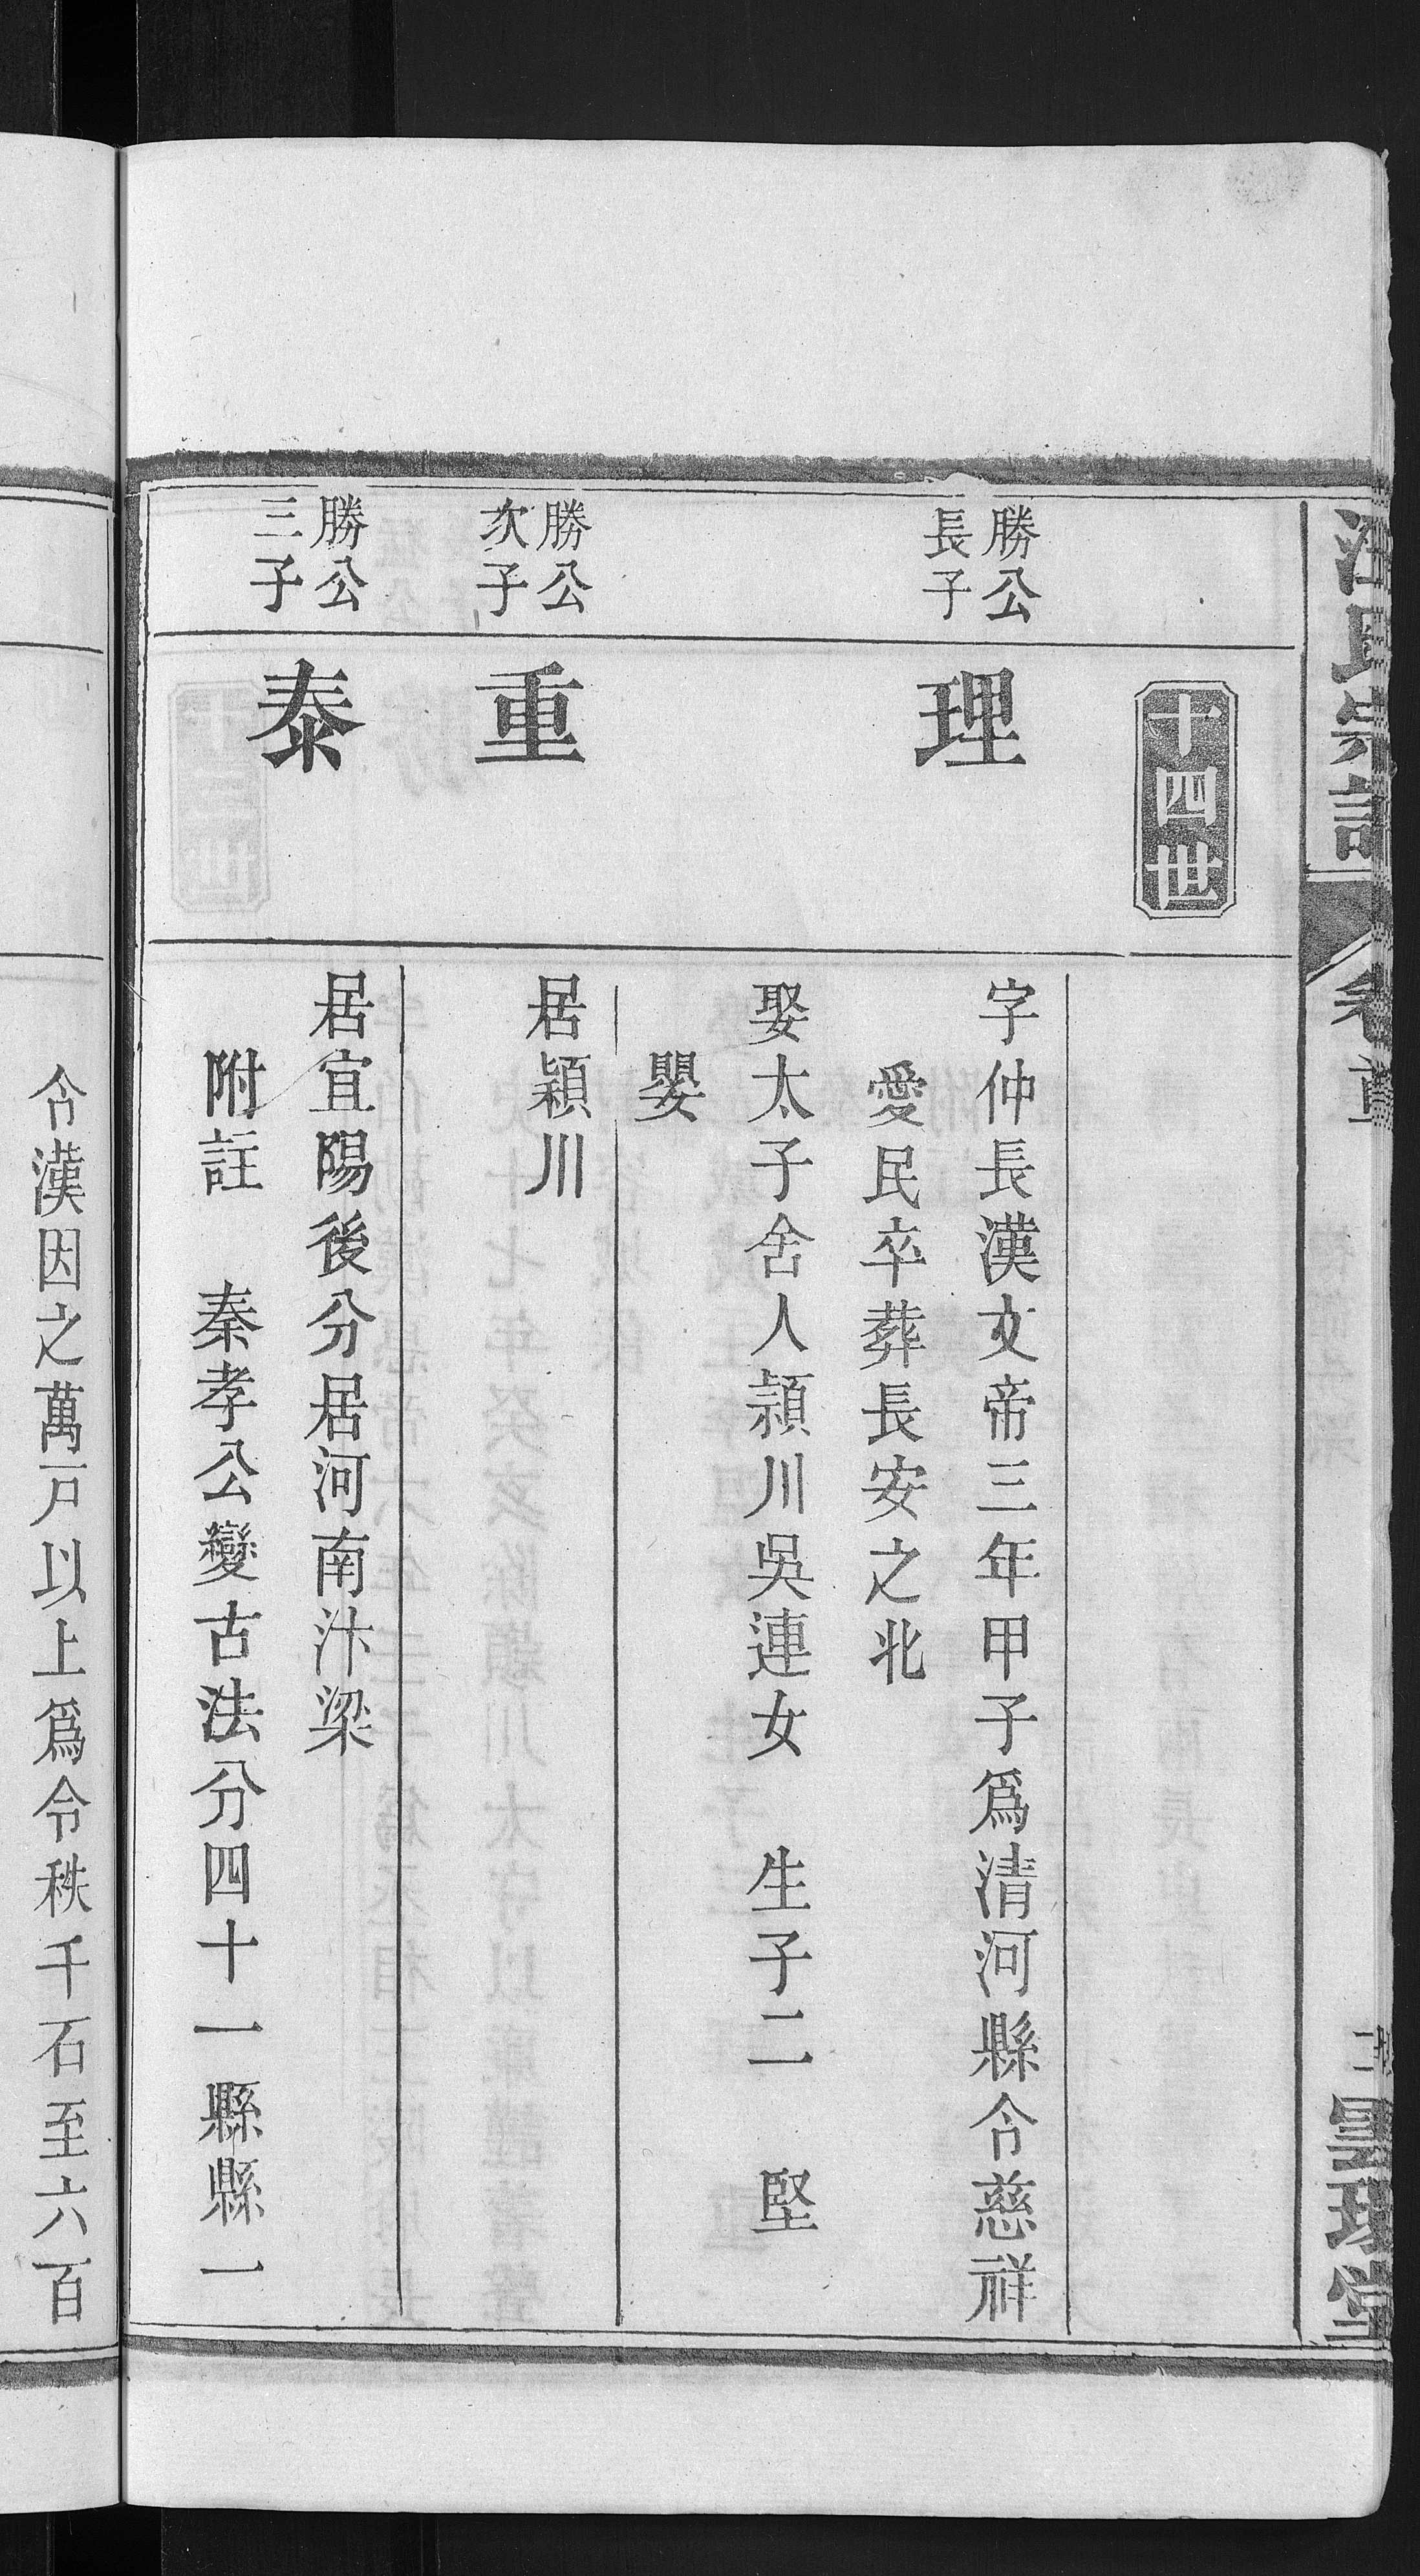 汪氏宗譜
卷首
十四世
勝公
長子
理
字仲長漢文帝三年甲子爲清河縣令慈祥
愛民卒葬長安之北
娶太子舍人潁川吳連女　生子二　堅
嬰
勝公
次子
重
居潁川
勝公
三子
泰
居宜陽後分居河南汴梁
附註　秦孝公變古法分四十一縣縣一
令漢因之萬戸以上爲令秩千石至六百